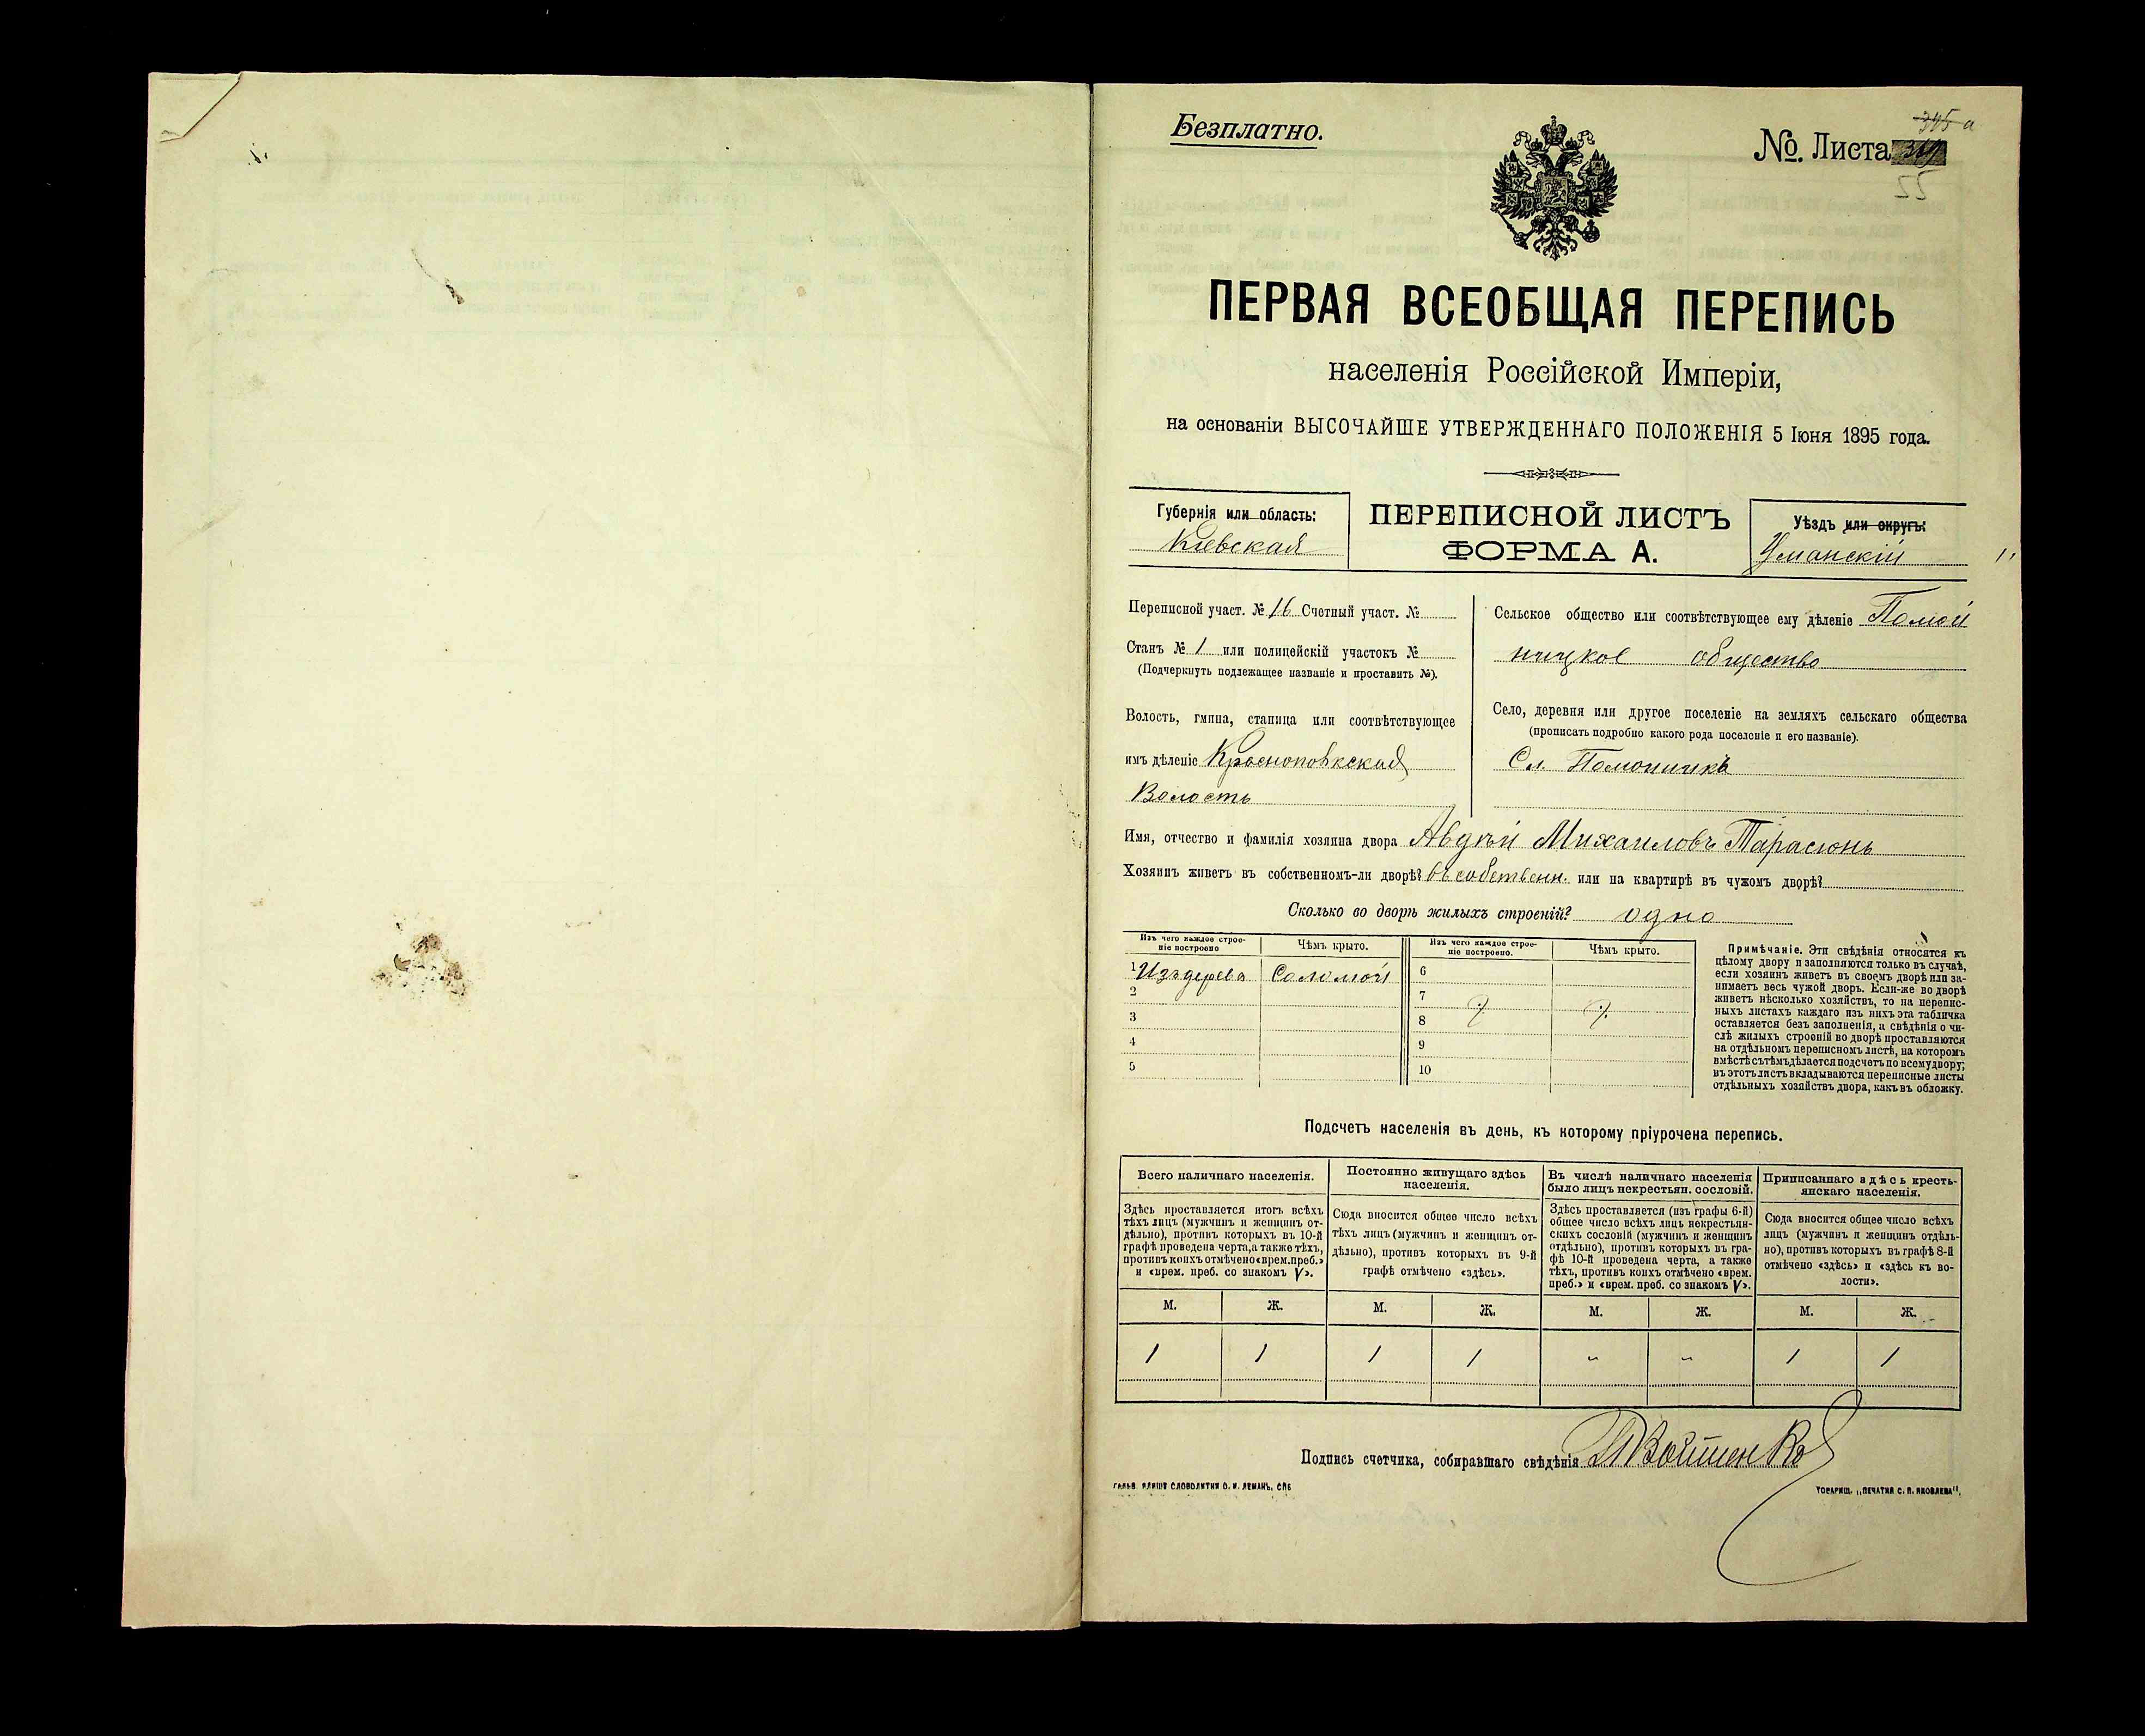 Безплатно.
№. Листа
345 а
55
ПЕРВАЯ ВСЕОБЩАЯ ПЕРЕПИСЬ
населенія Россійской Имперіи,
на основаніи ВЫСОЧАЙШЕ УТВЕРЖДЕННАГО ПОЛОЖЕНІЯ 5 Іюня 1895 года.
Губернія или область:
Кіевская
ПЕРЕПИСНОЙ ЛИСТЪ
ФОРМА А.
Уѣздъ или округъ:
Уманскій
Переписной участ. № 16 Счетный участ. №
Станъ № 1 или полицейскій участокъ №
(Подчеркнуть подлежащее названіе и проставить №).
Волость, гмина, станица или соотвѣтствующее
имъ дѣленіе Красноповкская
Волость
Сельское общество или соотвѣтствующее ему дѣленіе Помой
ницкое общество
Село, деревня или другое поселеніе на земляхъ сельскаго общества
(прописать подробно какого рода поселеніе и его названіе).
Сл. Помоничкѣ
Имя, отчество и фамилія хозяина двора Авдѣй Михаиловъ Тарасюнь
Хозяинъ живетъ въ собственномъ-ли дворѣ? въ собственн. или на квартирѣ въ чужомъ дворѣ?
Сколько во дворѣ жилыхъ строеній? одно
Изъ чего каждое строе-
ніе построено
Чѣмъ крыто.
Изъ чего каждое строе-
ніе построено.
Чѣмъ крыто.
1 Изъ дерева Соломой
2
3
4
5
6
7
8
9
10
Примѣчаніе. Эти свѣдѣнія относятся къ
цѣлому двору и заполняются только въ случаѣ,
если хозяинъ живетъ въ своемъ дворѣ или за-
нимаетъ весь чужой дворъ. Если-же во дворѣ
живетъ нѣсколько хозяйствъ, то на перепис-
ныхъ листахъ каждаго изъ нихъ эта табличка
оставляется безъ заполненія, а свѣдѣнія о чи-
слѣ жилыхъ строеній во дворѣ проставляются
на отдѣльномъ переписномъ листѣ, на которомъ
вмѣстѣ съ тѣмъ дѣлается подсчетъ по всему двору;
въ этотъ листъ вкладываются переписные листы
отдѣльныхъ хозяйствъ двора, какъ въ обложку.
Подсчетъ населенія въ день, къ которому пріурочена перепись.
Всего наличнаго населенія.
Здѣсь проставляется итогъ всѣхъ
тѣхъ лицъ (мужчинъ и женщинъ от-
дѣльно), противъ которыхъ въ 10-й
графѣ проведена черта, а также тѣхъ,
противъ коихъ отмѣчено «врем. преб.»
и «врем. преб. со знакомъ V».
Постоянно живущаго здѣсь
населенія.
Сюда вносится общее число всѣхъ
тѣхъ лицъ (мужчинъ и женщинъ от-
дѣльно), противъ которыхъ въ 9-й
графѣ отмѣчено «здѣсь».
Въ числѣ наличнаго населенія
было лицъ некрестьян. сословій.
Здѣсь проставляется (изъ графы 6-й)
общее число всѣхъ лицъ некрестьян-
скихъ сословій (мужчинъ и женщинъ
отдѣльно), противъ которыхъ въ гра-
фѣ 10-й проведена черта, а также
тѣхъ, противъ коихъ отмѣчено «врем.
преб.» и «врем. преб. со знакомъ V».
Приписаннаго здѣсь кресть-
янскаго населенія.
Сюда вносится общее число всѣхъ
лицъ (мужчинъ и женщинъ отдѣль-
но), противъ которыхъ въ графѣ 8-й
отмѣчено «здѣсь» и «здѣсь къ во-
лости».
М. Ж. М. Ж. М. Ж. М. Ж.
1 1 1 1 „ „ 1 1
Подпись счетчика, собиравшаго свѣдѣнія
ГАЛЬВ. КЛИШЕ СЛОВОЛИТНИ О. И. ЛЕМАНЪ, СПБ
ТОВАРИЩ. „ПЕЧАТНЯ С. П. ЯКОВЛЕВА“.